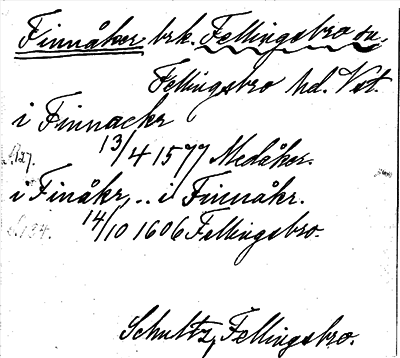 Finnåker brk. Fellingsbro sn.
Fellingsbro hd. Vst.
i Finnackr
13/4 1577 Medåker.
i Finåkr, .. i Finnåkr.
14/10 1606 Fellingsbro.
Schultz, Fellingsbro.